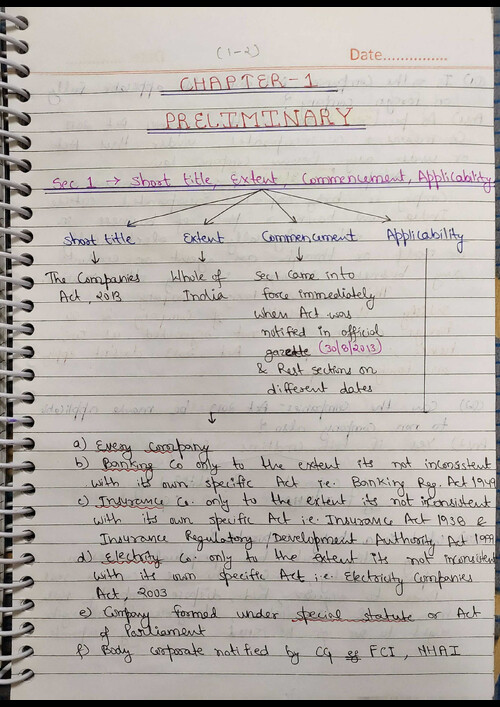 (1-2)
Date...............
CHAPTER-1
PRELIMINARY
Sec 1 → Short title, Extent, Commencement, Applicability
Short title Extent Commencement Applicability
The Companies Act, 2013
Whole of India
Sec 1 came into
force immediately
when Act was
notified in official
gazette (30/8/2013)
& Rest sections on
different dates
a) Every company
b) Banking Co only to the extent its not inconsistent
with its own specific Act i.e. Banking Reg. Act 1949
c) Insurance Co. only to the extent its not inconsistent
with its own specific Act i.e. Insurance Act 1938 &
Insurance Regulatory Development Authority Act 1999
d) Electricity Co. only to the extent its not inconsistent
with its own specific Act i.e. Electricity Companies
Act, 2003
e) Company formed under special statute or Act
of Parliament
f) Body corporate notified by CG eg FCI, NHAI